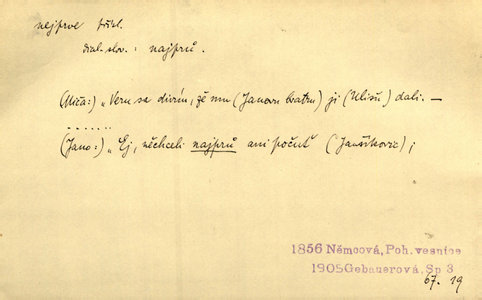 nejprve příkl.
dial. slov.: najprú.
(Miča:) „Veru sa divím, že mu (Janovu bratru) ji (Ulisu) dali. —
. . . . . .
(Jano:) „Ej, něchceli najprú ani počuť (Janšíkovic);
1856 Němcová, Poh. vesnice
1905 Gebauerová, Sp 3
67. 19